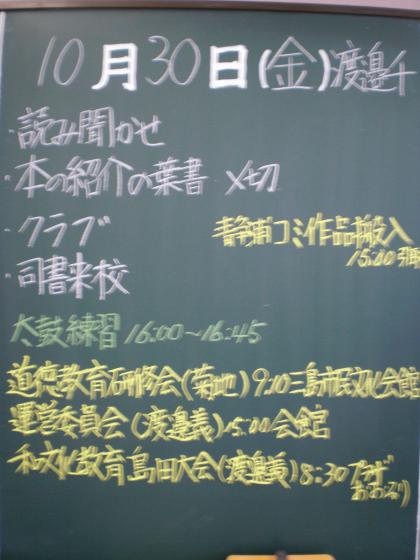 10月30日(金)渡邉千
・読み聞かせ
・本の紹介の葉書 〆切
・クラブ
静浦コミ作品搬入
15:00
・司書来校
太鼓練習 16:00〜16:45
道徳教育研修会(菊地) 9:10三島市民文化会館
運営委員会(渡邉義)15:00会館
和文化教育島田大会(渡邉義)8:30プラザ
おおるり